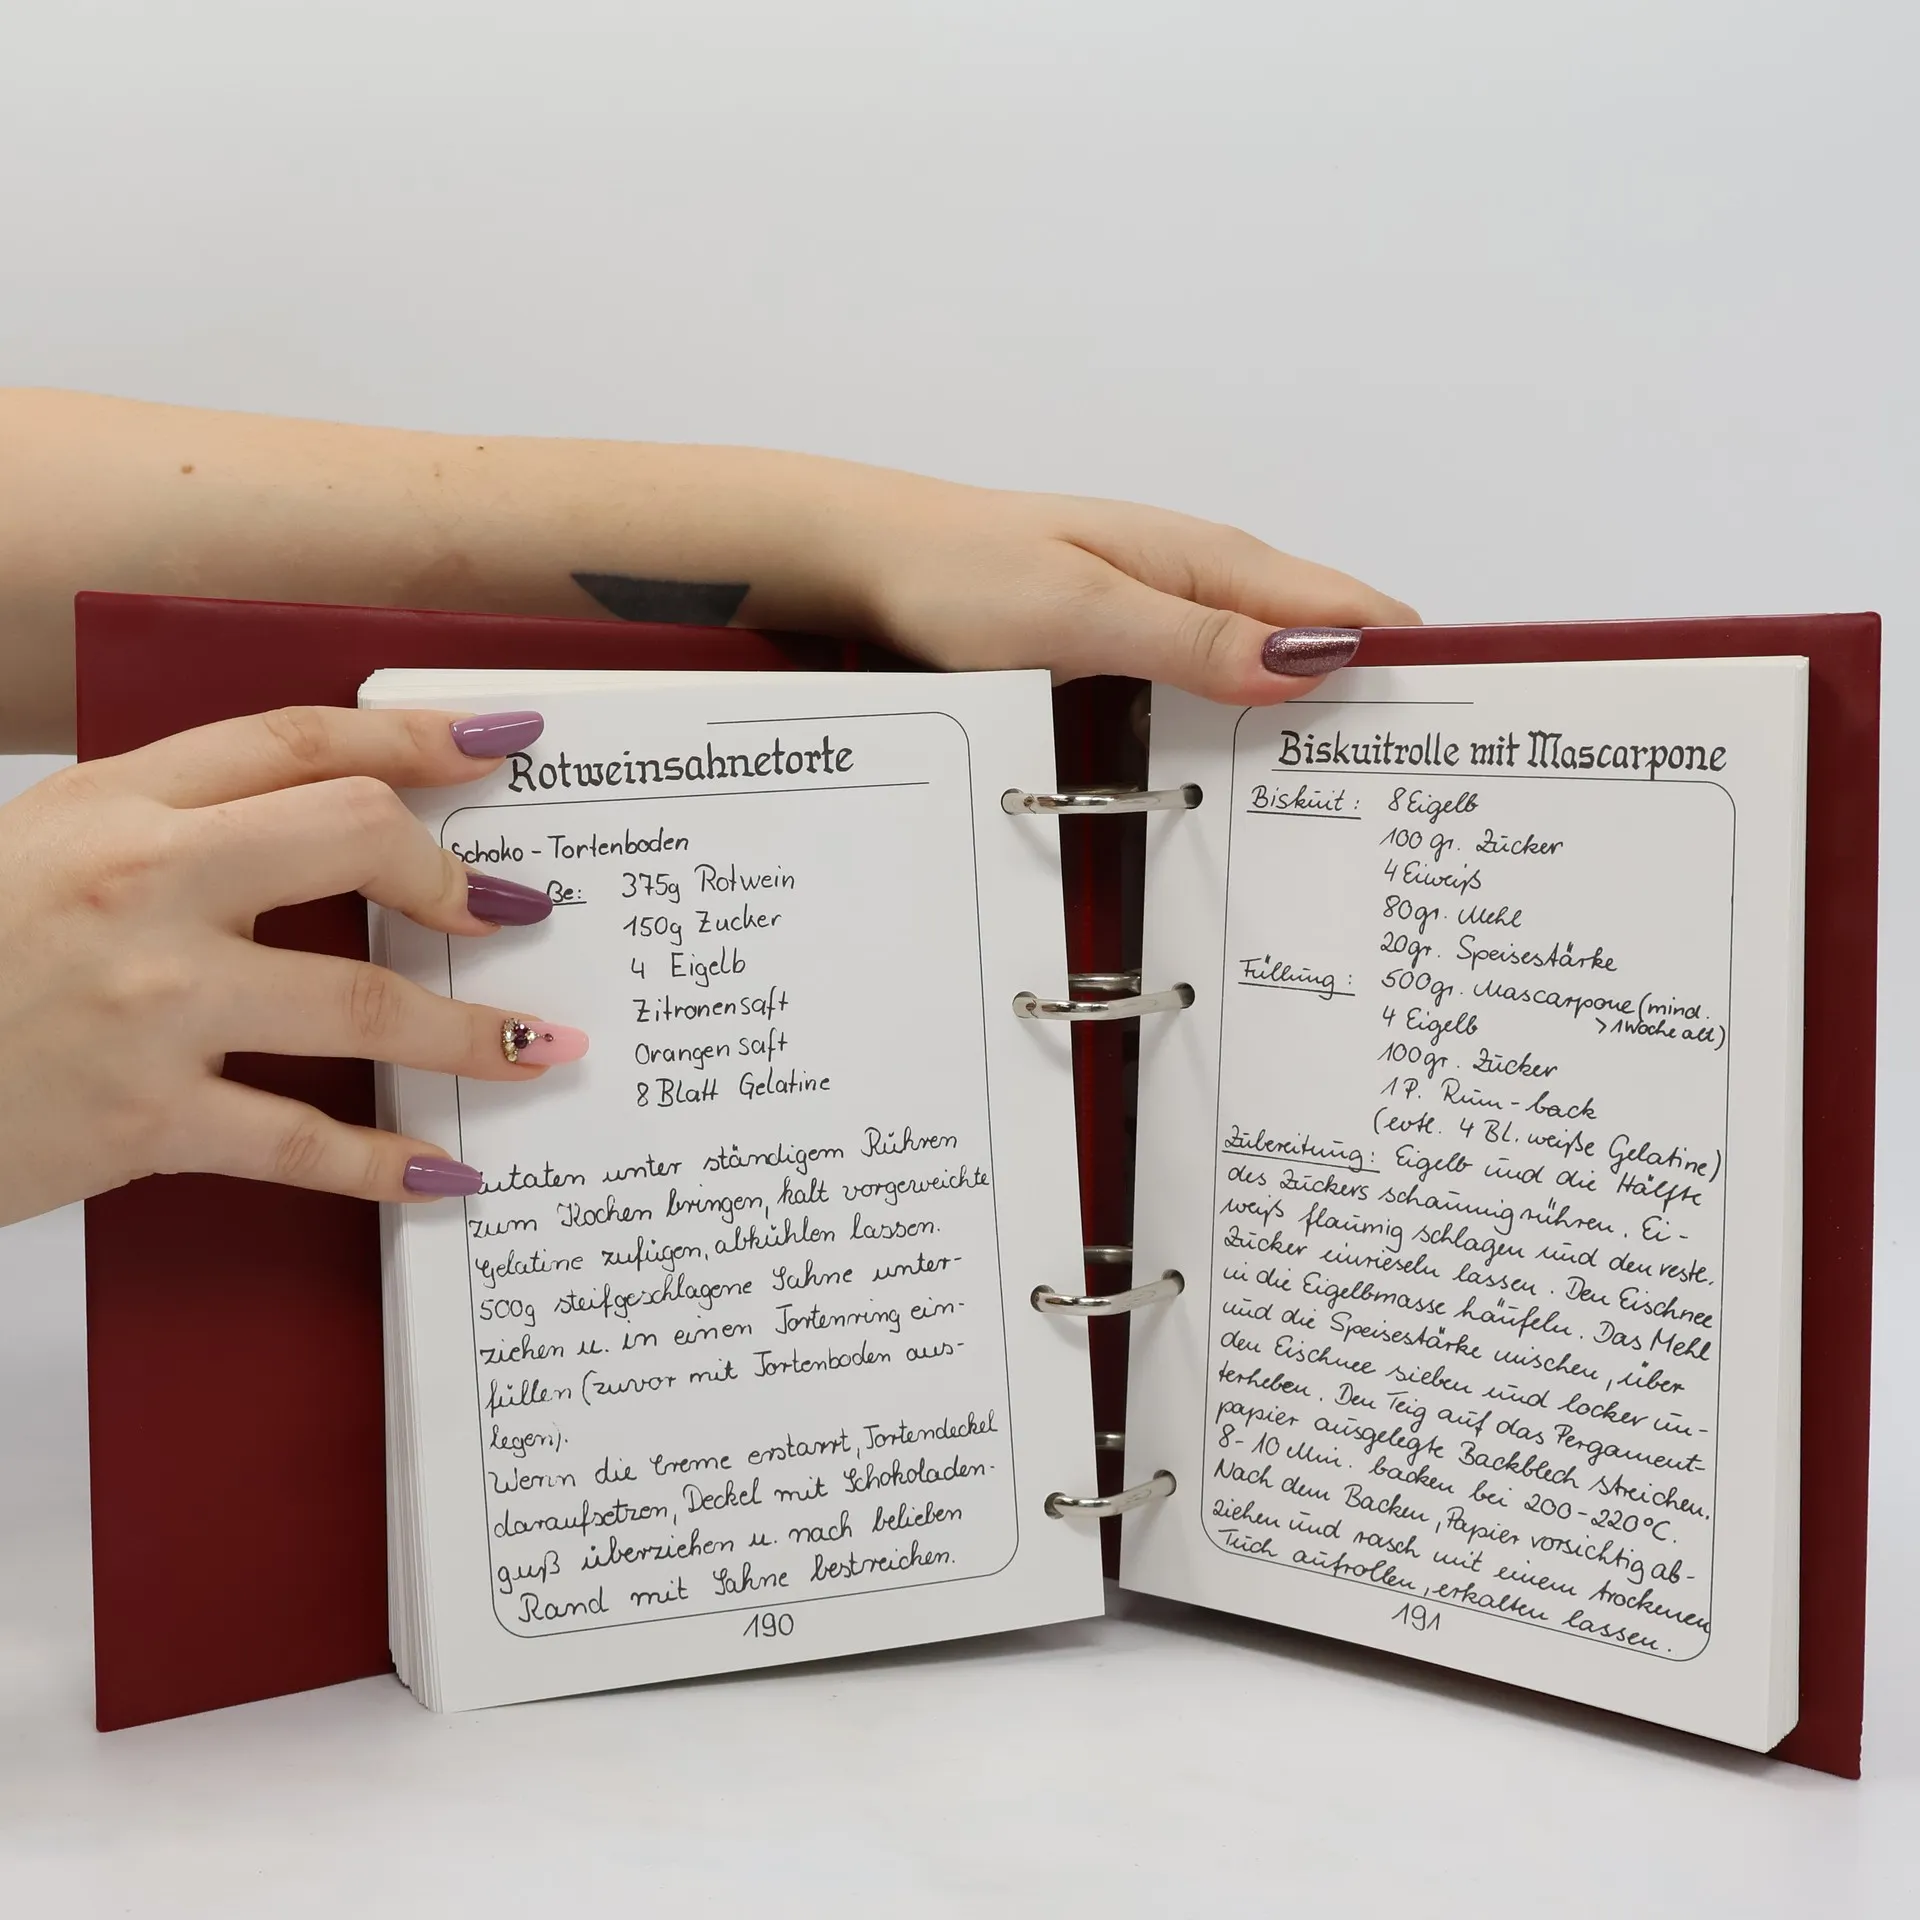 Rotweinsahnetorte
Schoko - Tortenboden
ße: 375g Rotwein
150g Zucker
4 Eigelb
Zitronensaft
Orangensaft
8 Blatt Gelatine
utaten unter ständigem Rühren
zum Kochen bringen, kalt vorgeweichte
Gelatine zufügen, abkühlen lassen.
500g steifgeschlagene Sahne unter-
ziehen u. in einen Tortenring ein-
füllen (zuvor mit Tortenboden aus-
legen).
Wenn die Creme erstarrt, Tortendeckel
daraufsetzen, Deckel mit Schokoladen-
guß überziehen u. nach belieben
Rand mit Sahne bestreichen.
190
Biskuitrolle mit Mascarpone
Biskuit: 8 Eigelb
100 gr. Zucker
4 Eiweiß
80gr. Mehl
20gr. Speisestärke
Füllung: 500gr. Mascarpone (mind.
> 1 Woche alt)
4 Eigelb
100gr. Zucker
1 P. Rum-back
(evtl. 4 Bl. weiße Gelatine)
Zubereitung: Eigelb und die Hälfte
des Zuckers schaumig rühren. Ei-
weiß flaumig schlagen und den restl.
Zucker einrieseln lassen. Den Eischnee
in die Eigelbmasse häufeln. Das Mehl
und die Speisestärke mischen, über
den Eischnee sieben und locker un-
terheben. Den Teig auf das Pergament-
papier ausgelegte Backblech streichen.
8-10 Min. backen bei 200-220°C.
Nach dem Backen, Papier vorsichtig ab-
ziehen und rasch mit einem trockenen
Tuch aufrollen, erkalten lassen.
191